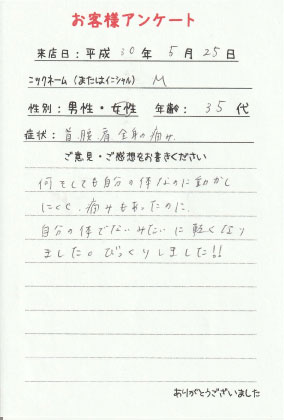 お客様アンケート
来店日：平成 30 年 5 月 25 日
ニックネーム（またはイニシャル） M
性別：男性・女性 年齢： 35 代
症状： 首 腰 肩 全身の痛み
ご意見・ご感想をお書きください
何をしても自分の体なのに動かし
にくく、痛みもあったのに、
自分の体でないみたいに軽くなり
ました。びっくりしました!!
ありがとうございました